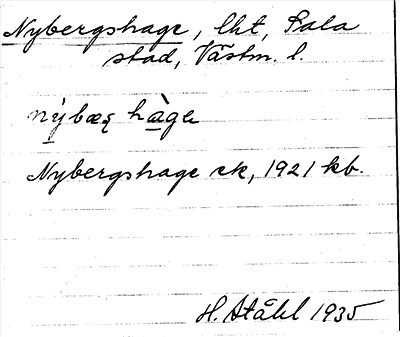 Nybergshage, lht, Sala
stad, Västm. l.
nýbæꭈ hàgɛ
Nybergshage ek, 1921 kb.
H. Ståhl 1935